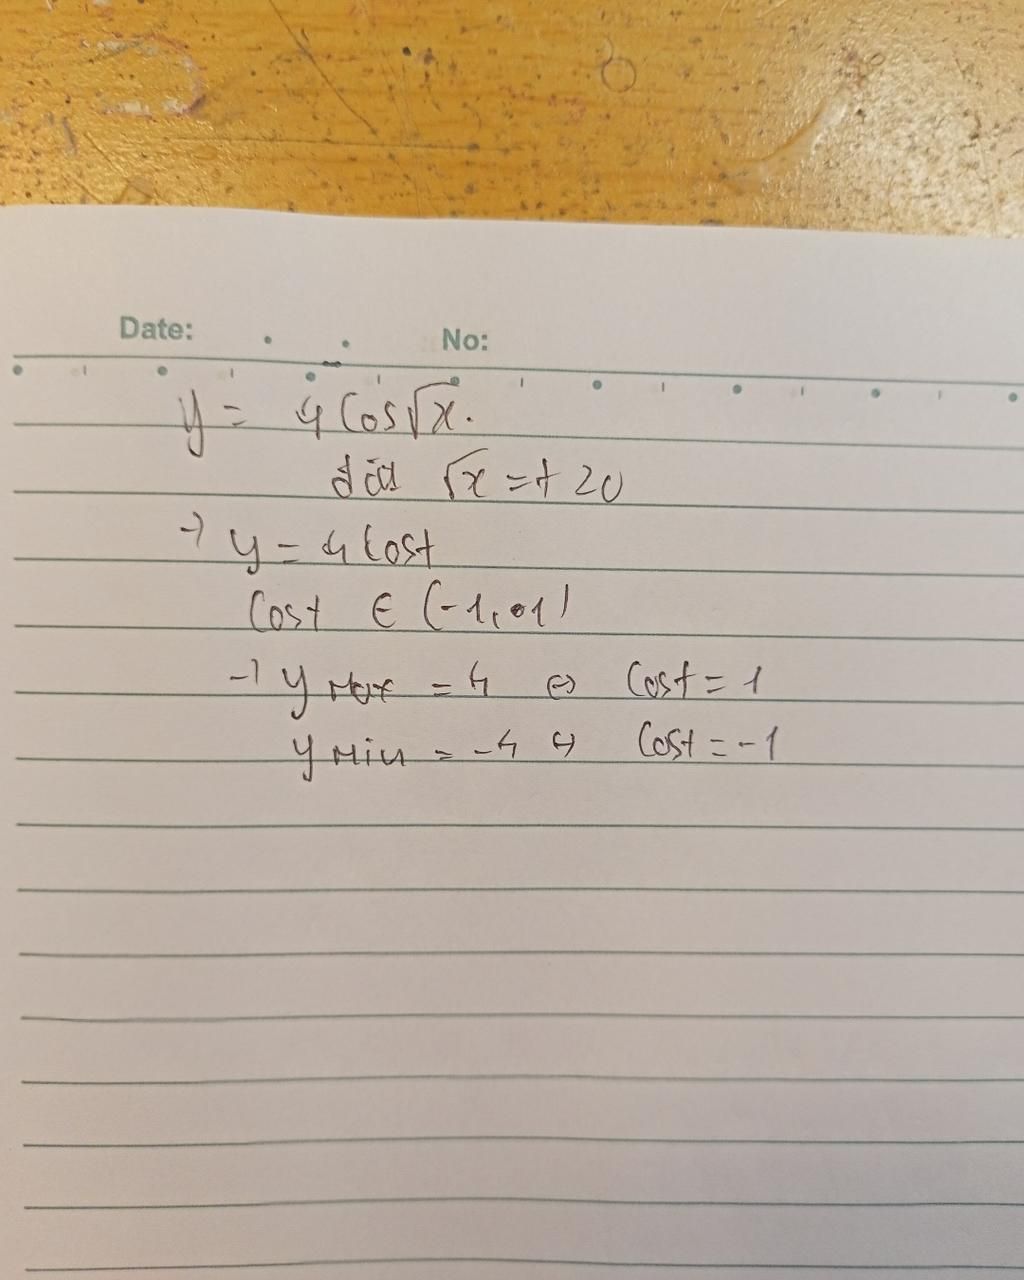 Date: No:
y = 4 Cos√x.
đặt √x = t ≥ 0
→ y = 4 Cost
Cost ∈ (-1, 1)
→ y Max = 4 ⇔ Cost = 1
y Min = -4 ⇔ Cost = -1